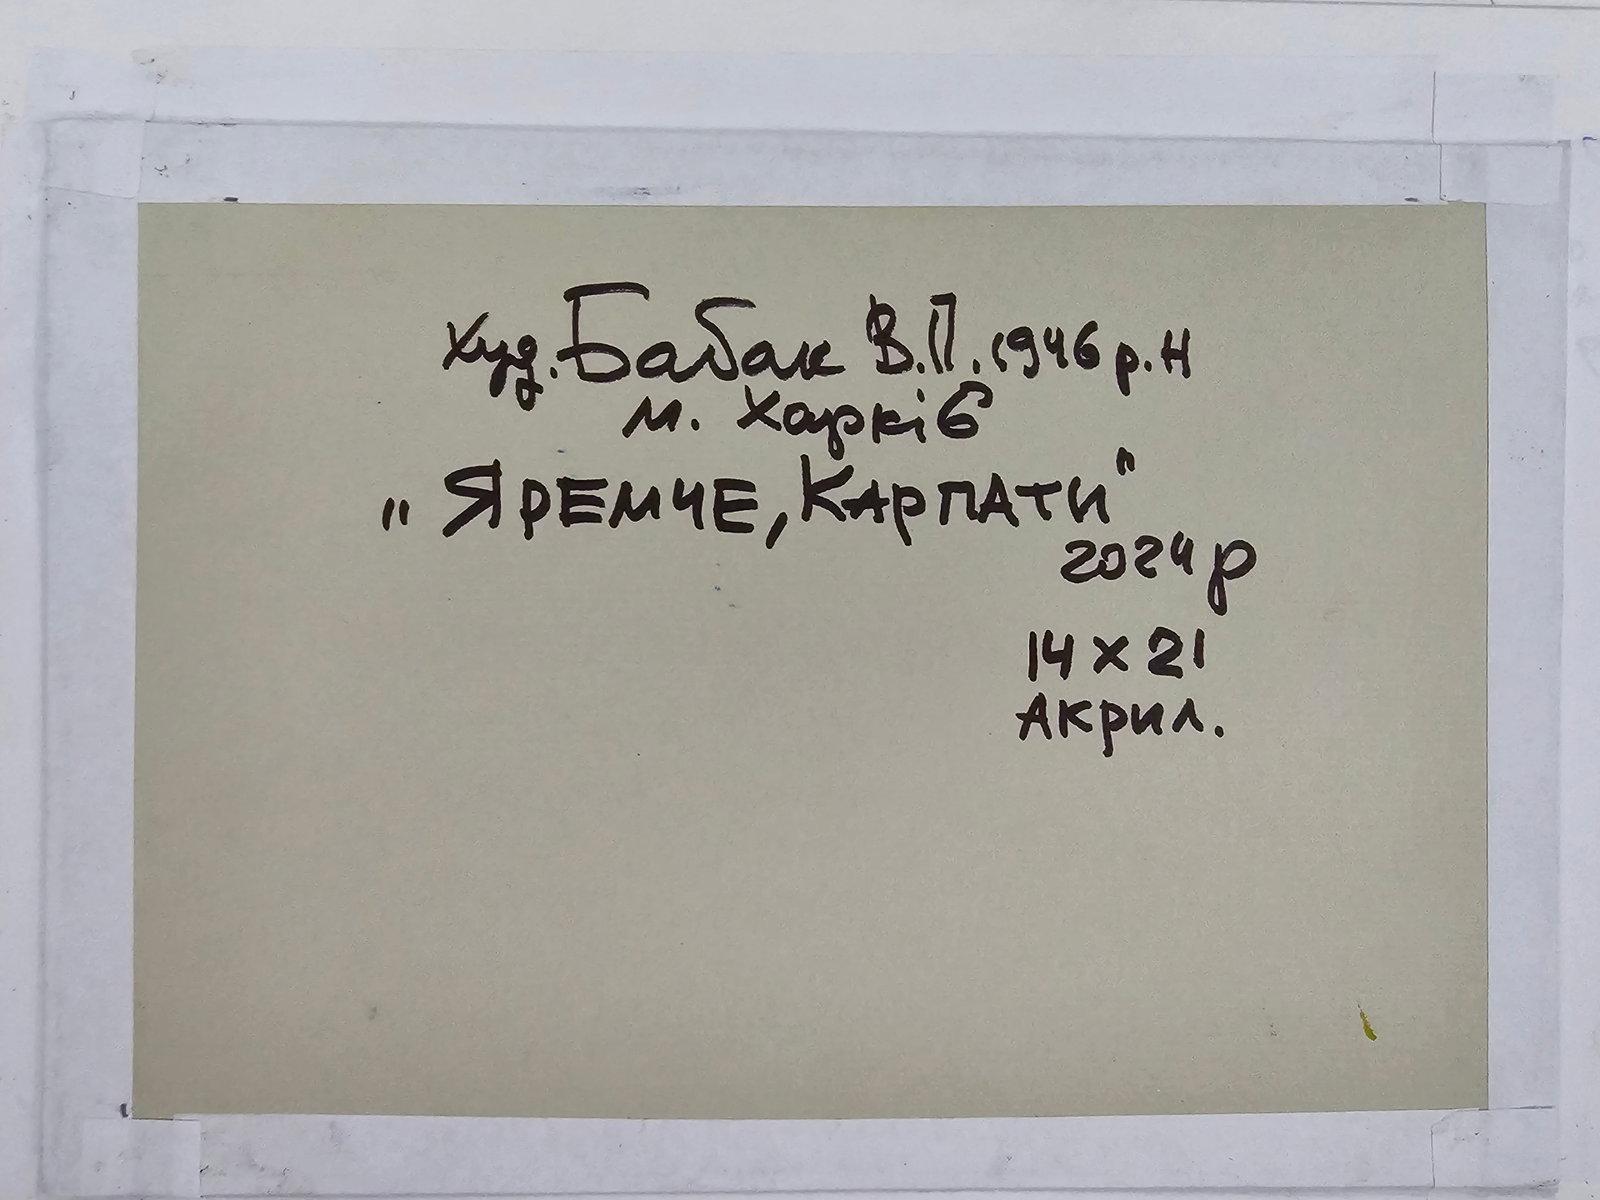 Худ. Бабак В.П. 1946 р.н
м. Харків
„Яремче, Карпати"
2024 р
14 x 21
Акрил.